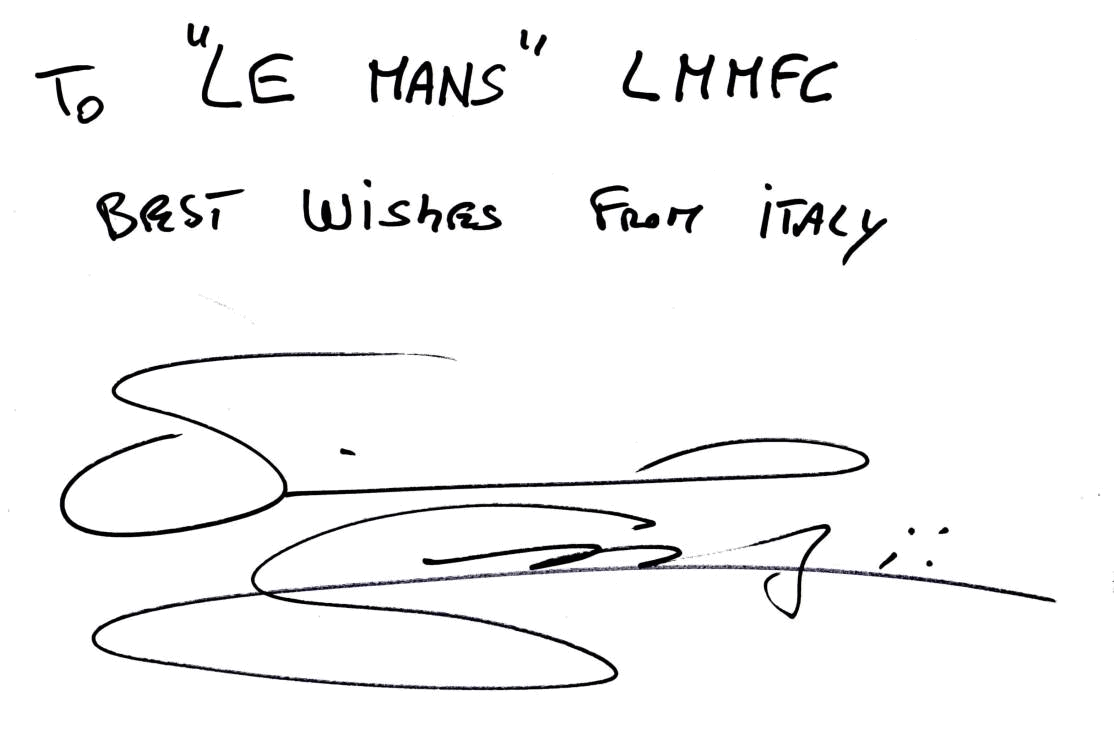 To "LE MANS" LMMFC
BEST WISHES FROM ITALY